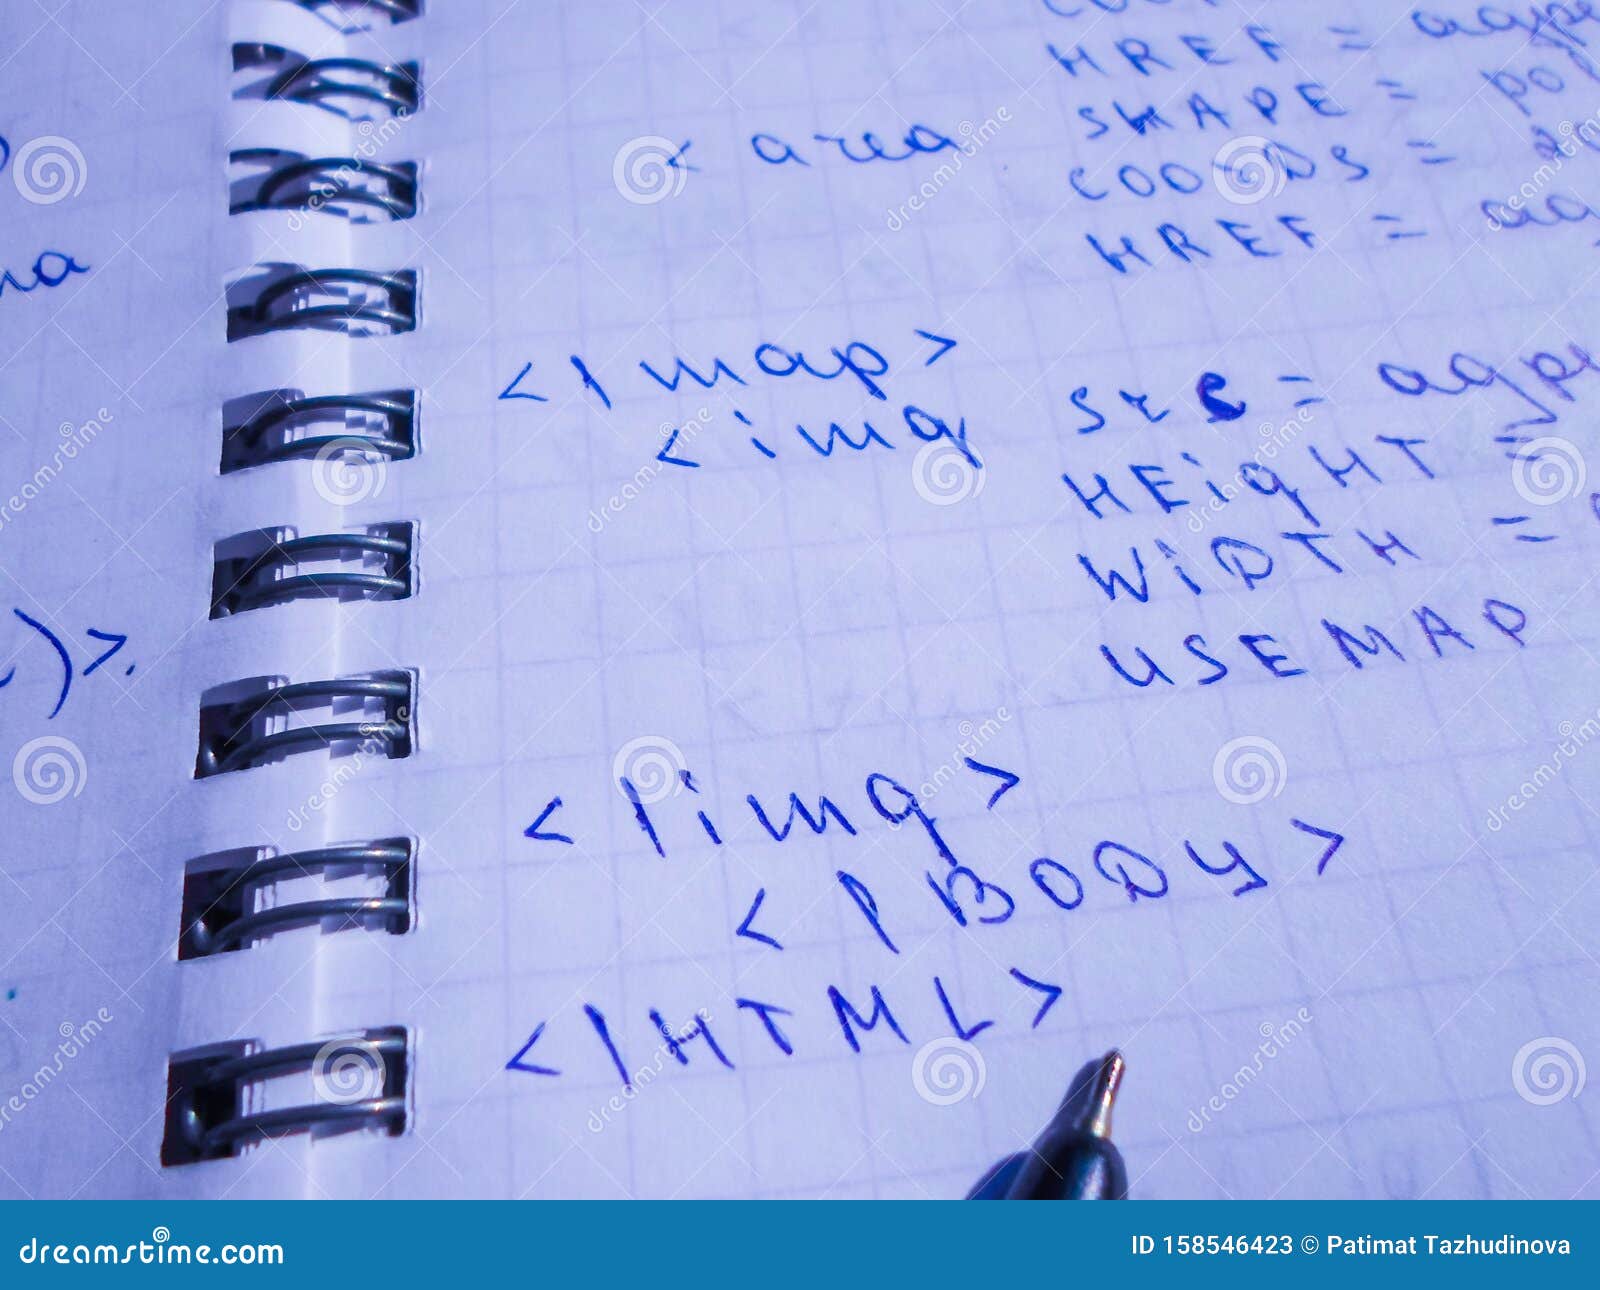 HREF =
< area SHAPE =
COORDS =
HREF =
</map>
<img src =
HEigHT =
WiDTH =
USEMAP
</img>
</BODY>
</HTML>
)>.
dreamstime.com
ID 158546423 © Patimat Tazhudinova